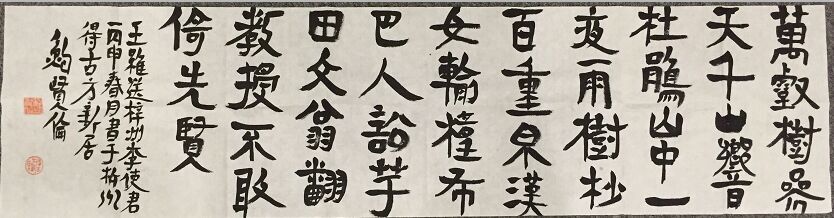 萬壑樹參
天千山響
杜鵑山中一
夜雨樹杪
百重泉漢
女輸橦布
巴人訟芋
田文翁翻
教授不敢
倚先賢
王維送梓州李使君
丙申春月書于
得古方新居
賢倫